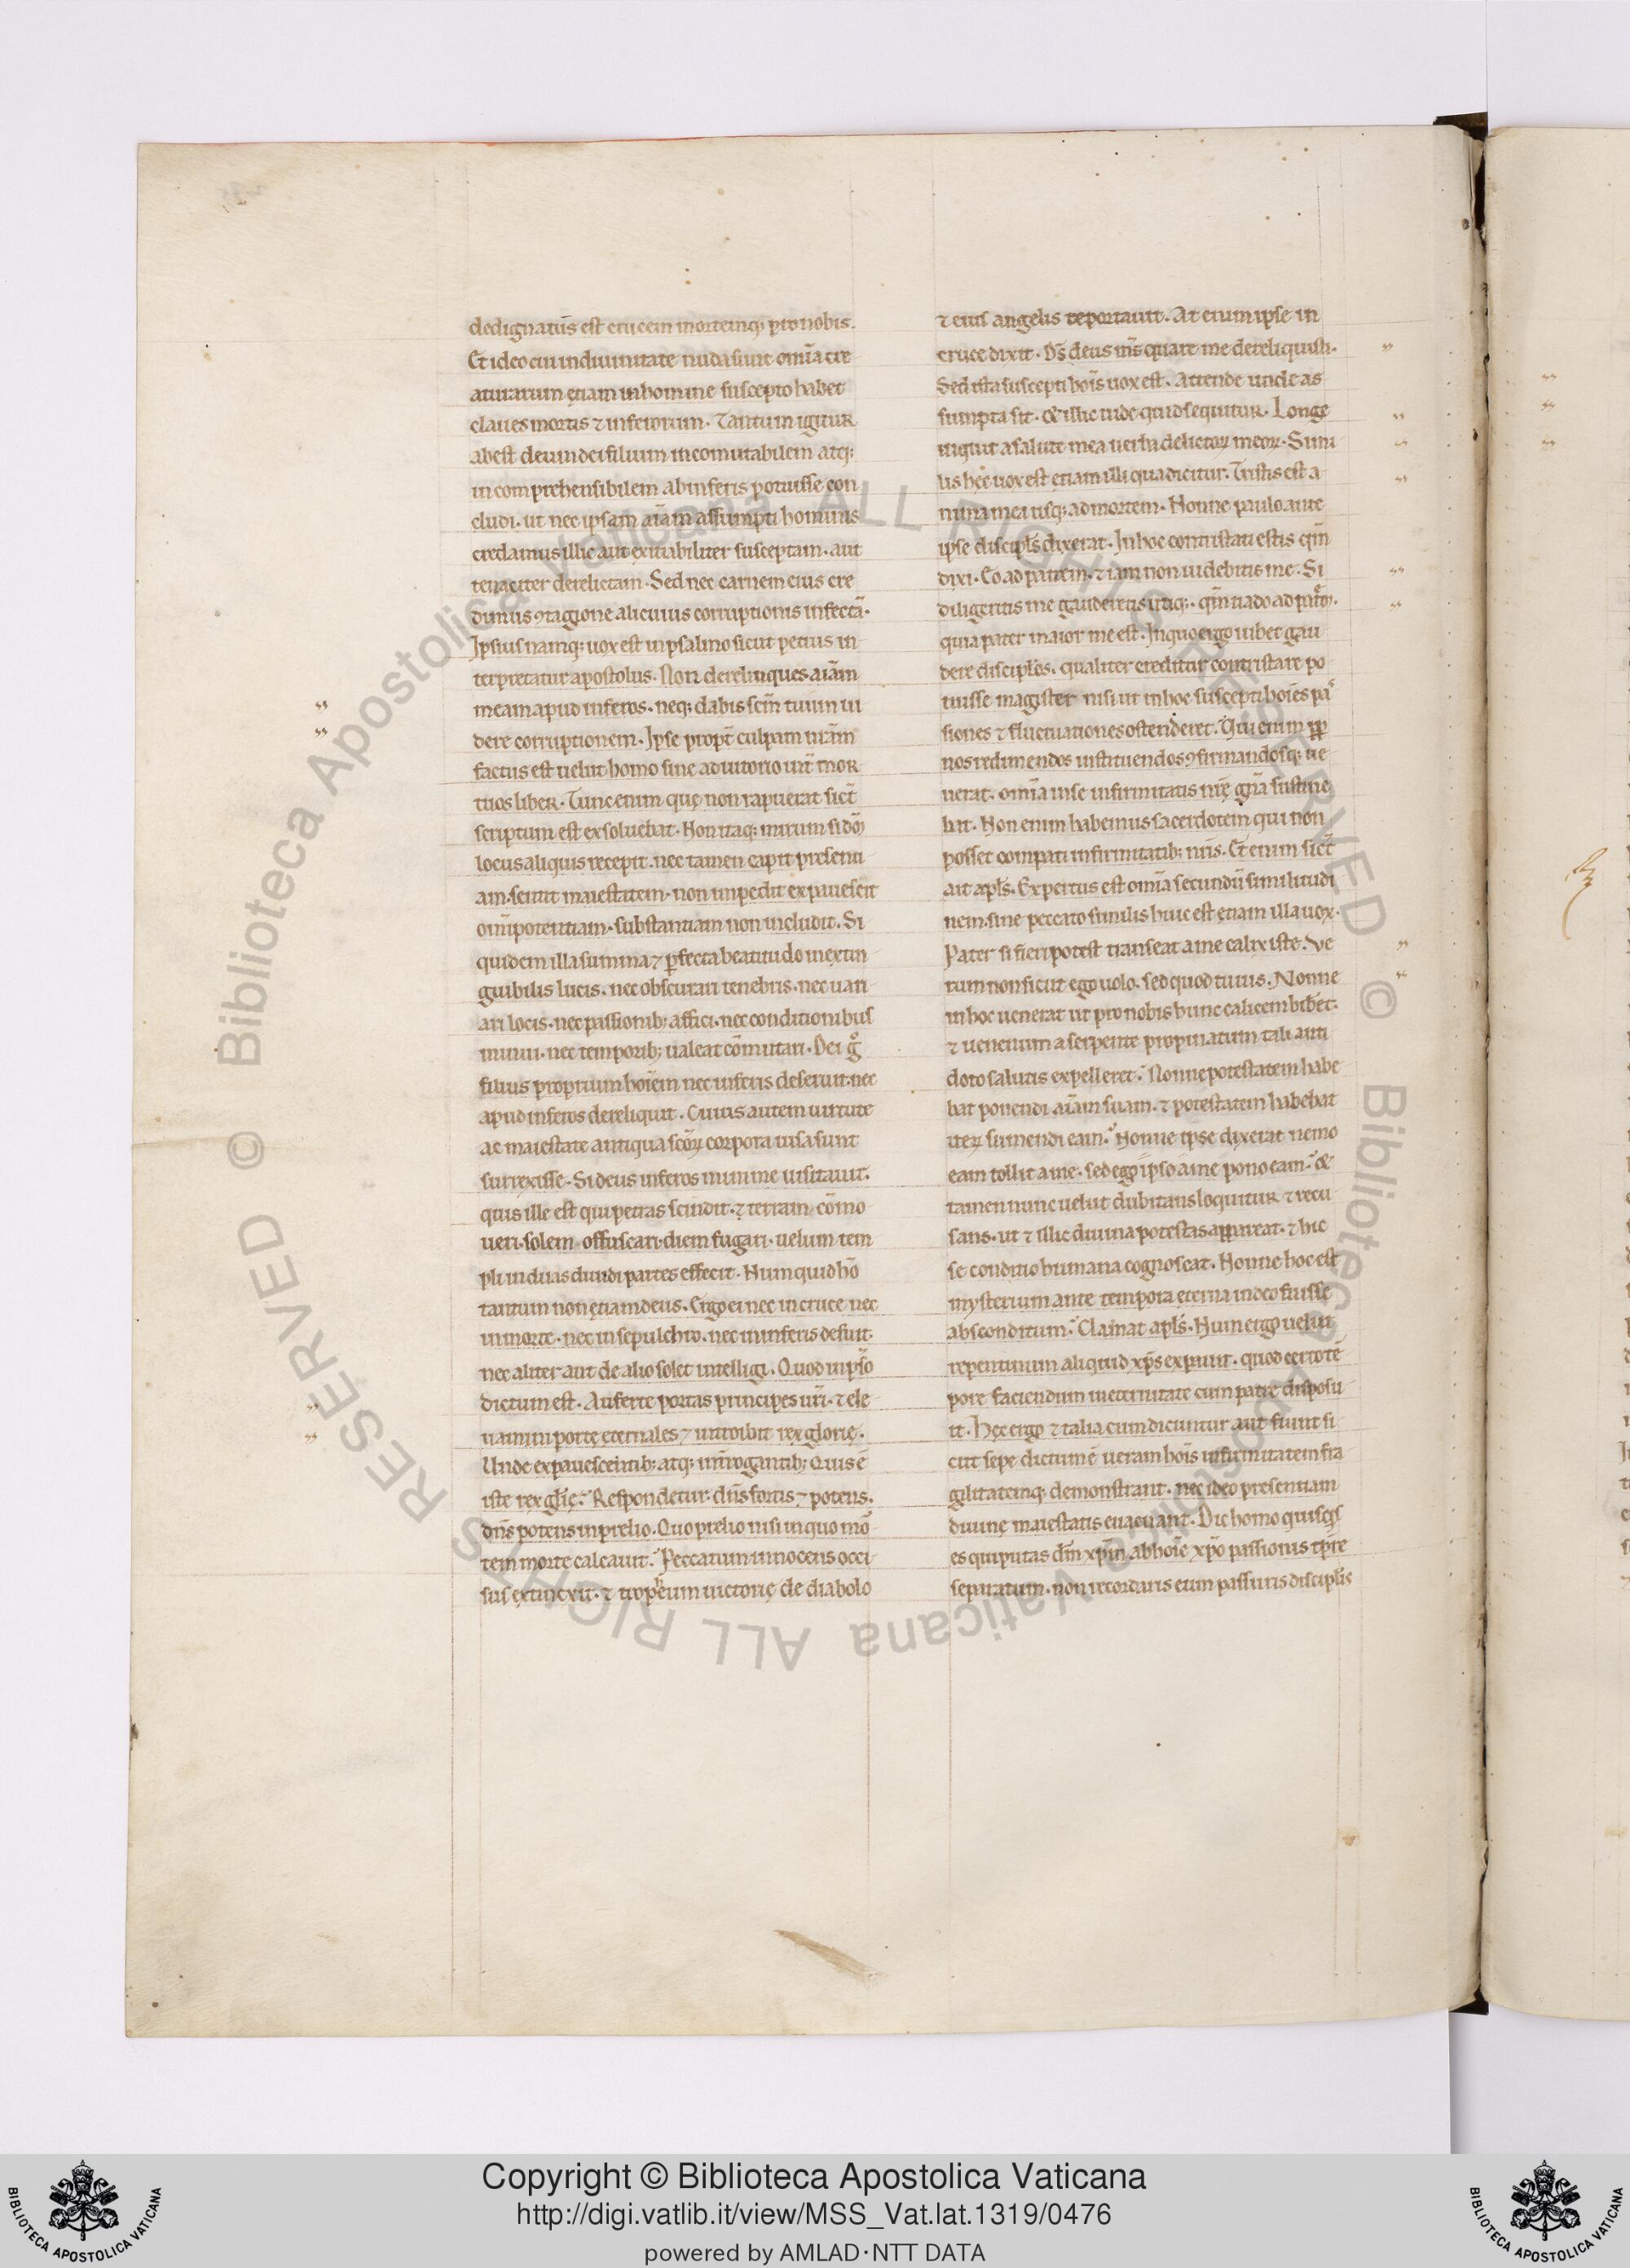 dedignatus est crucem mortemq; pro nobis.
Et ideo cui in diuinitate nuda sunt omīa cre
aturarum etiam in homine suscepto habet
claues mortis ⁊ inferorum. Tantum igitur
abest deum dei filium incomutabilem atq;
incomprehensibilem ab inferis potuisse con
cludi. ut nec ipsam aīam assumpti hominis
credamus illic aut exitiabiliter susceptam. aut
tenaciter derelictam. Sed nec carnem eius cre
dimus ꝯtagione alicuius corruptionis infectā.
Ipsius namq; uox est in psalmo sicut petrus in
terpretatur apostolus. Non derelinques aīam
meam apud inferos. neq; dabis scm̄ tuum ui
dere corruptionem. Ipse propt̄ culpam nr̄am
factus est uelut homo sine adiutorio int̄ mor
tuos liber. Tunc enim que non rapuerat sict̄
scriptum est exsoluebat. Non itaq; mirum si dn̄m
locus aliquis recepit. nec tamen capit presenti
am. sentit maiestatem. non impedit expauescit
om̄ipotentiam. substantiam non includit. Si
quidem illa summa ⁊ ꝑfecta beatitudo inextin
guibilis lucis. nec obscurari tenebris. nec uari
ari locis. nec passionib; affici. nec conditionibus
minui. nec temporib; ualeat cōmutari. Dei gͦ
filius proprium hoīem nec inferis deseruit. nec
apud inferos dereliquit. Cuius autem uirtute
ac maiestate antiqua scōꝝ corpora uisa sunt
surrexisse. Si deus inferos minime uisitauit.
quis ille est qui petras scindit. ⁊ terram cōmo
ueri. solem offuscari. diem fugari. uelum tem
pli in duas diuidi partes effecit. Numquid hō
tantum non etiam deus. Ergo ei nec in cruce nec
in morte. nec in sepulchro. nec in inferis defuit.
nec aliter aut de alio solet intelligi. Quod in ps̄o
dictum est. Auferte portas principes ur̄i. ⁊ ele
uamini porte eternales ⁊ introibit rex glorie.
Unde expauescentib; atq; int̄rogantib; Quis ē
iste rex gl̄ie? Respondetur. dn̄s fortis ⁊ potens.
dn̄s potens in prelio. Quo prelio nisi in quo mor
tem morte calcauit? Peccatum innocens occi
sus extinxit. ⁊ tropheum uictorie de diabolo
⁊ eius angelis reportauit. At enim ipse in
cruce dixit. Ds̄ deus m̄s quare me dereliquisti.
Sed ista suscepti hoīs uox est. Attende unde as
sumpta sit. & illic uide quid sequitur. Longe
inquit a salute mea uerba delictoꝝ meoꝝ. Simi
lis hec uox est etiam illi qua dicitur. Tristis est a
nima mea usq; ad mortem. Nonne paulo ante
ipse discipl̄s dixerat. In hoc contristati estis qm̄
dixi. Eo ad patrem. ⁊ iam non uidebitis me. Si
diligeritis me gauderetis utiq;. qm̄ uado ad patrem.
quia pater maior me est. In quo ergo iubet gau
dere discipl̄os. qualiter creditur contristare po
tuisse magister nisi ut in hoc suscepti hoīes pas
siones ⁊ fluctuationes ostenderet? Qui enim ꝓp
nos redimendos instituendos ꝯfirmandosq; ue
nerat. omīa in se infirmitatis nr̄e gn̄a sustine
bat. Non enim habemus sacerdotem qui non
posset compati infirmitatib; nr̄is. Et enim sict̄
ait apl̄s. Expertus est omīa secundū similitudi
nem. sine peccato similis huic est etiam illa uox.
Pater si fieri potest transeat a me calix iste. Ve
rum non sicut ego uolo. sed quod tu uis. Nonne
in hoc uenerat ut pro nobis hunc calicem biberet.
⁊ uenenum a serpente propinatum tali anti
doto salutis expelleret? Nonne potestatem habe
bat ponendi aīam suam. ⁊ potestatem habebat
iteꝝ sumendi eam? Nonne ipse dixerat nemo
eam tollit a me. sed ego ipso a me pono eam? &
tamen nunc uelut dubitans loquitur ⁊ recu
sans. ut ⁊ illic diuina potestas appareat. ⁊ hic
se conditio humana cognoscat. Nonne hoc est
mysterium ante tempora eterna in deo fuisse
absconditum? Clamat apl̄s. Num ergo uelut
repentinum aliquid xp̄s expauit. quod certo tē
pore faciendum in eternitate cum patre disposu
it. Hec ergo ⁊ talia cum dicuntur aut fiunt si
cut sepe dictum ē ueram hoīs infirmitatem fra
gilitatemq; demonstrant. nec ideo presentiam
diuine maiestatis euacuant. Dic homo quisqs
es qui putas dm̄ xp̄m ab hoīe xp̄o passionis tp̄re
separatum. non recordaris eum passuris discipl̄is
Copyright © Biblioteca Apostolica Vaticana
http://digi.vatlib.it/view/MSS_Vat.lat.1319/0476
powered by AMLAD·NTT DATA
BIBLIOTECA APOSTOLICA VATICANA
BIBLIOTECA APOSTOLICA VATICANA
© Biblioteca Apostolica Vaticana ALL RIGHTS RESERVED © Biblioteca Apostolica Vaticana ALL RIGHTS RESERVED